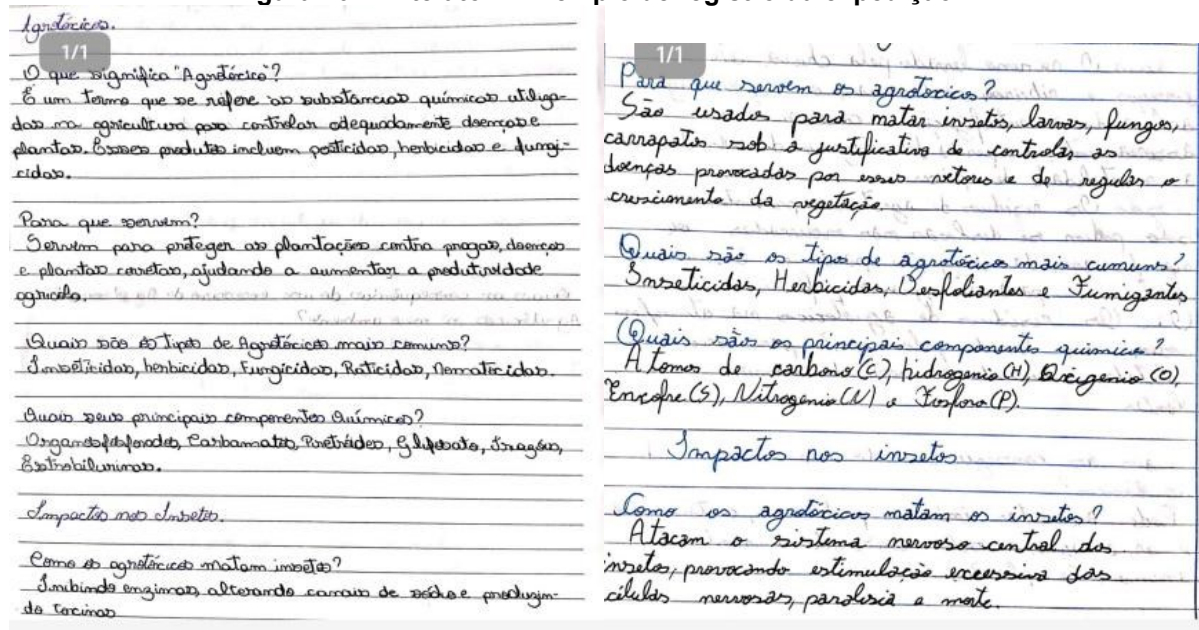 Agrotóxicos.
1/1
O que significa "Agrotóxico"?
É um termo que se refere as substâncias químicas utiliza-
das na agricultura para controlar adequadamente doenças e
plantas. Esses produtos incluem pesticidas, herbicidas e fungi-
cidas.
Para que servem?
Servem para proteger as plantações contra pragas, doenças
e plantas corretas, ajudando a aumentar a produtividade
agrícola.
Quais são os Tipos de Agrotóxicos mais comuns?
Inseticidas, herbicidas, Fungicidas, Raticidas, Nematocidas.
Quais seus principais componentes Químicos?
Organofosforados, Carbamatos, Piretróides, Glifosato,
Estrobilurinas.
Impactos nos Insetos.
Como os agrotóxicos matam insetos?
Inibindo enzimas, alterando canais de sódio e produzin-
do toxinas
1/1
Para que servem os agrotoxicos?
São usados para matar insetos, larvas, fungos,
carrapatos sob a justificativa de controlar as
doenças provocadas por esses vetores e de regular o
crescimento da vegetação.
Quais são os tipos de agrotóxicos mais cumuns?
Inseticidas, Herbicidas, Desfoliantes e Fumigantes
Quais sãos os principais componentes quimicos?
Atomos de carbono (C), hidrogenio (H), Oxigenio (O),
Enxofre (S), Nitrogenio (N) e Fosforo (P).
Impactos nos insetos
Como os agrotóxicos matam os insetos?
Atacam o sistema nervoso central dos
insetos, provocando estimulação excessiva das
células nervosas, paralisia e morte.